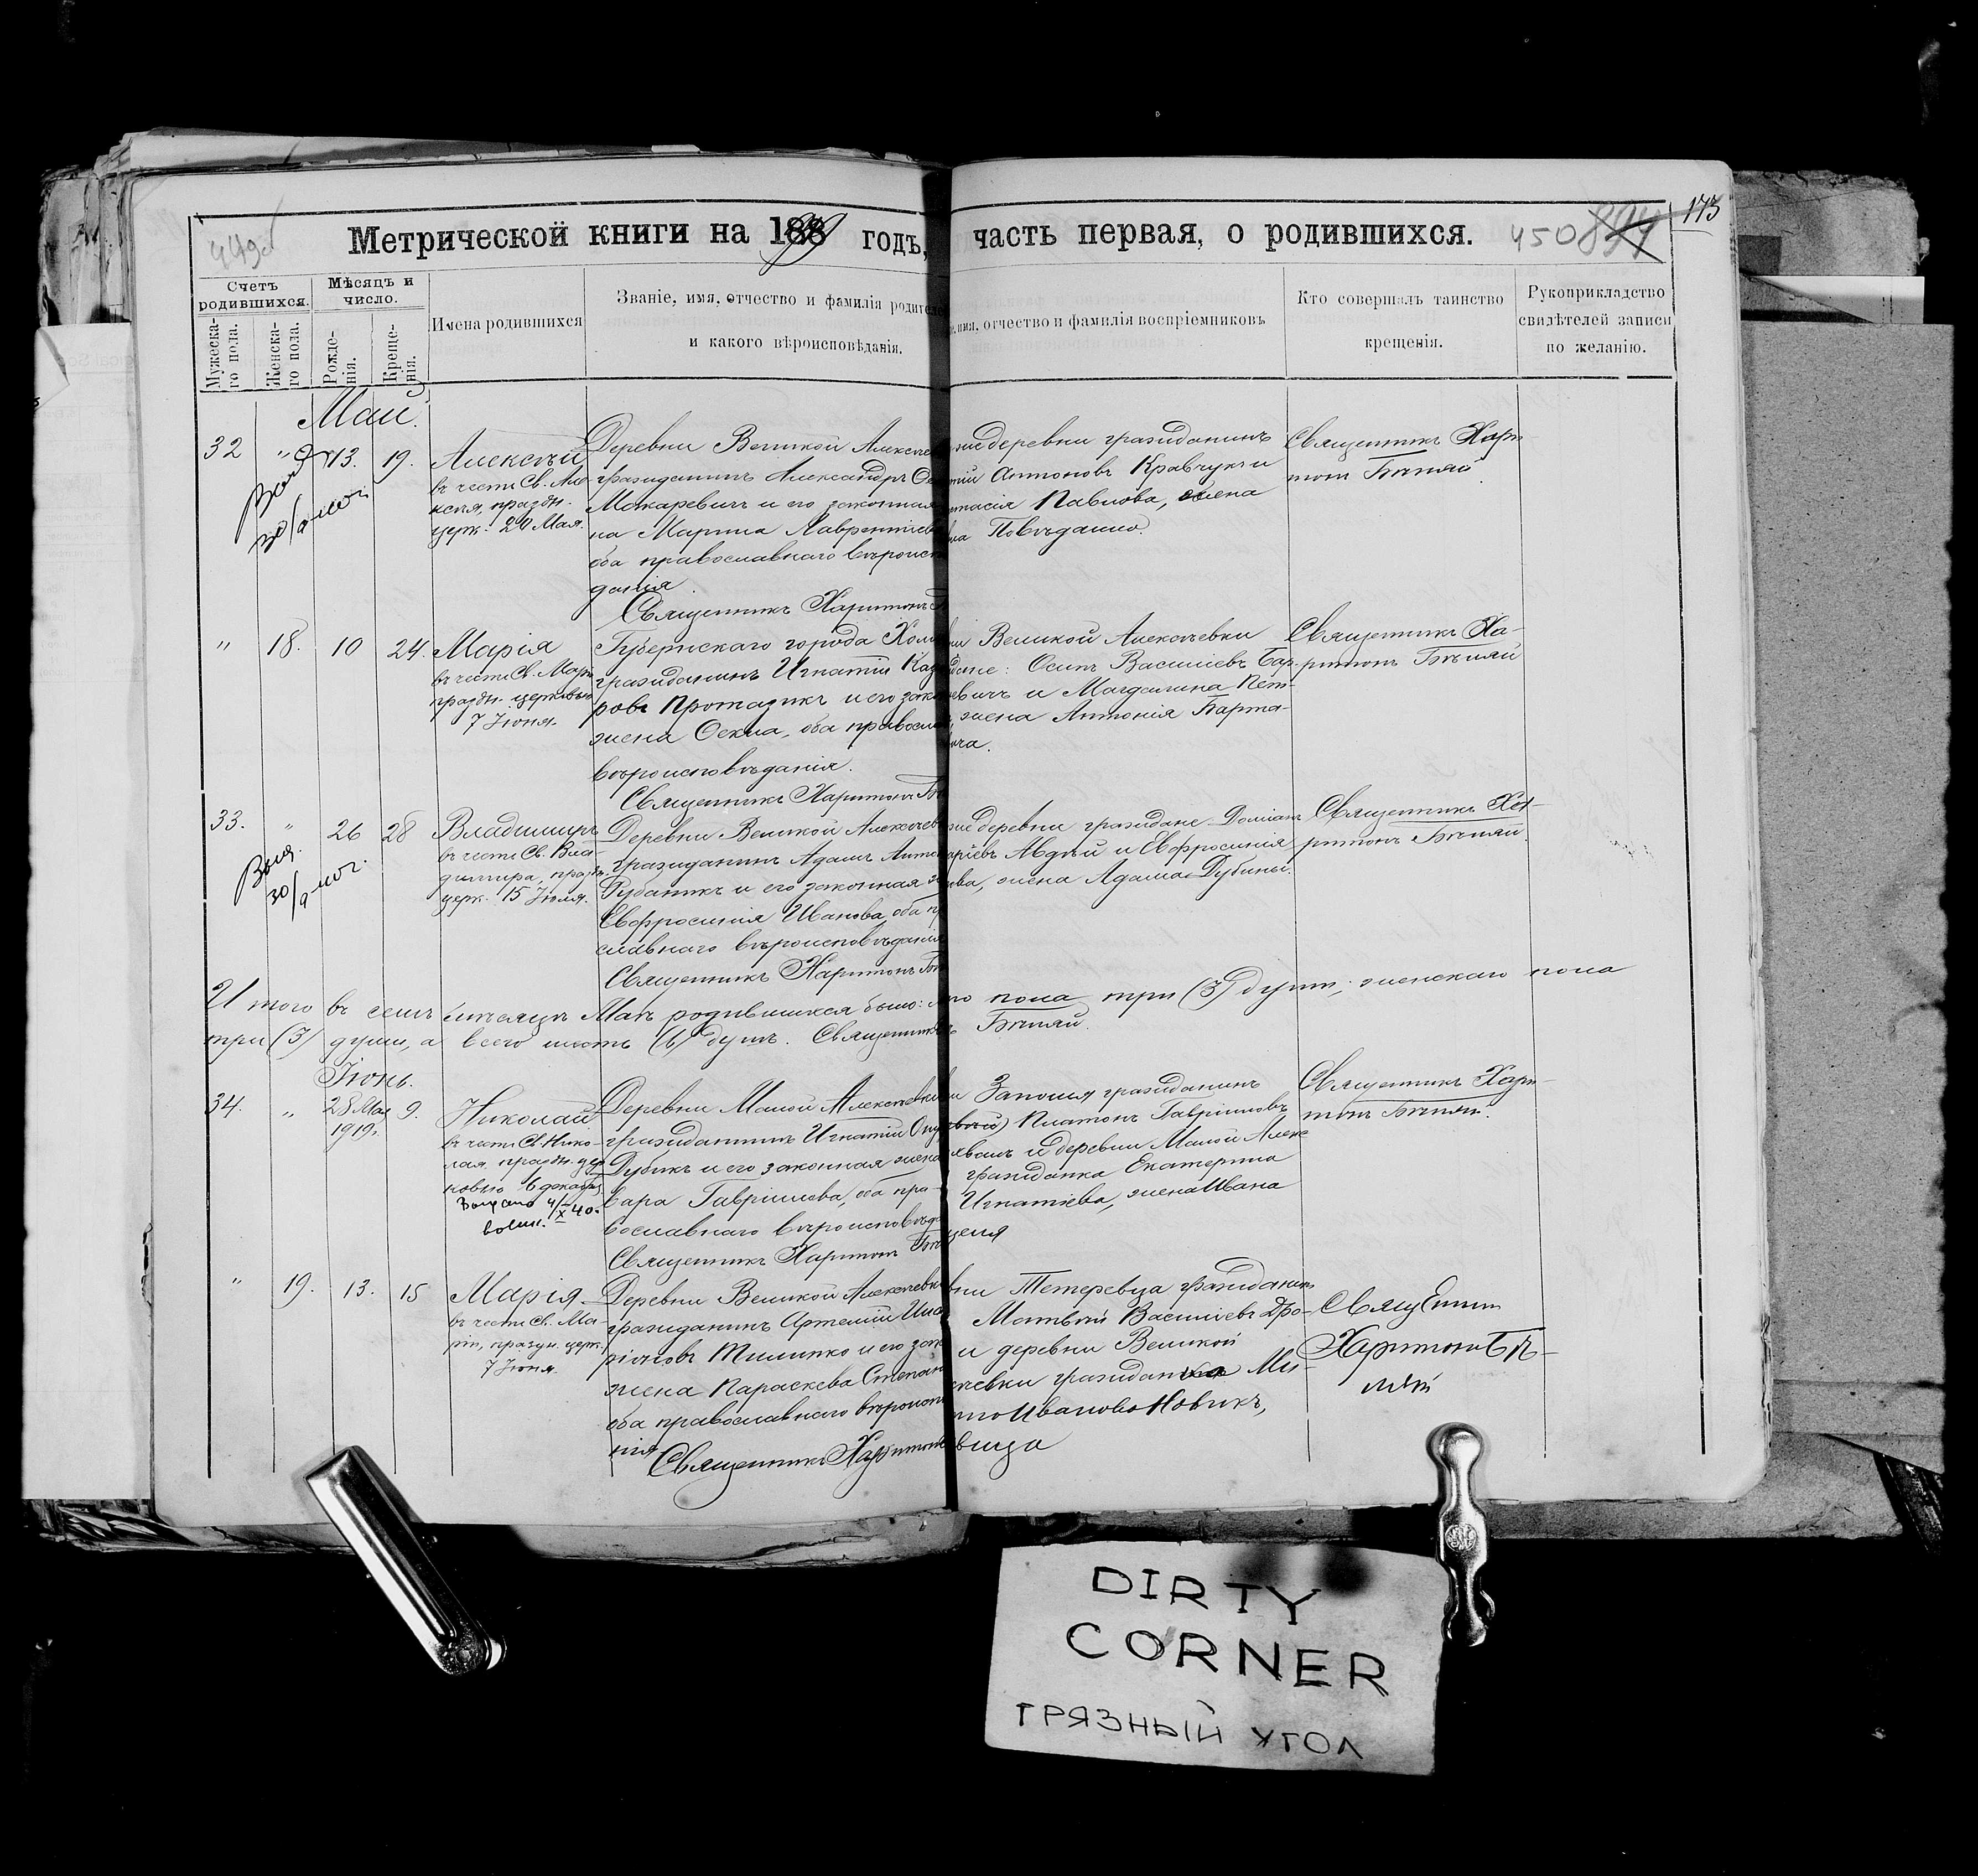 449об
Метрической книги на 1919 годъ, часть первая, о родившихся.
450 894 173
Счетъ родившихся.
Мужеска-
го пола.
Женска-
го пола.
Мѣсяцъ и
число.
Рожде-
нія.
Креще-
нія.
Имена родившихся
Званіе, имя, отчество и фамилія родителе
и какого вѣроисповѣданія.
имя, отчество и фамилія воспріемниковъ
Кто совершалъ таинство
крещенія.
Рукоприкладство
свидѣтелей записи
по желанію.
Май.
32 " 13. 19.
Алексѣй
въ честь Св. Але-
ксѣя, праздн.
церк. 20 Мая.
Деревни Великой Алексѣев
гражданинъ Александръ
Макаревичъ и его законная
на Марина Лаврентіев
оба православнаго вѣроиспо
данія.
Священникъ Харитонъ
деревни гражданинъ
Антоновъ Кравчукъ и
тасія Павлова, жена
Священникъ Хари
тонъ Бѣляй.
" 18. 10 24.
Марія
въ честь Св. Маріи
праздн. церковью
7 Іюня.
Губернскаго города Холм
гражданинъ Игнатій Каз
ровъ Протазикъ и его зако
жена Оекла, оба правосла
вѣроисповѣданія.
Священникъ Харитонъ Бѣ
Великой Алексѣевки
дане: Осипъ Василіевъ Бар-
евичъ и Магдалина Пет-
жена Антонія Барта-
ича.
Священникъ Ха-
ритонъ Бѣляй
33. " 26 28
Владиміръ
въ честь Св. Вла-
диміра, праздн.
церк. 15 Іюля.
Деревни Великой Алексѣев
гражданинъ Адамъ Анто
Рубаникъ и его законная
Евфросинія Иванова, оба п
славнаго вѣроисповѣданія
Священникъ Харитонъ Бѣ
деревни граждане Доміанъ
Авдѣй и Евфросинія
ва, жена Адама Дубины.
Священникъ Ха-
ритонъ Бѣляй.
Итого въ семъ мѣсяцѣ Маѣ родившихся было: го пола три (3) душъ; женскаго пола
три (3) души, а всего шесть (6) душъ. Священникъ Бѣляй.
Іюнь.
34. " 28 Мая 9.
1919г.
Николай
въ честь Св. Нико-
лая, праздн. цер
ковью 6 декабр
Деревни Малой Алексѣевки
гражданинъ Игнатій
Дубикъ и его законная жена
вара Гавріилова, оба пра-
вославнаго вѣроисповѣда
Священникъ Харитонъ Бѣ
Заполья гражданинъ
Платонъ Гавріиловъ
и деревни Малой Алекс
гражданка Екатерина
Игнатіева, жена Ивана
Священникъ Хари-
тонъ Бѣляй.
" 19. 13. 15
Марія
въ честь Св. Ма-
ріи, праздн. церк.
7 Іюня.
Деревни Великой Алексѣевки
гражданинъ Артемій
ріоновъ Тилипко и его зак
жена Параскева Степан
оба православнаго вѣроиспо
нія
Священникъ Харитонъ
вни Тетеревца гражданинъ
Матѳей Василіевъ Дро-
и деревни Великой
сѣевки гражданка Ма-
Иванова Новикъ,
вица
Священник
Харитонъ Бѣ-
ляй
DIRTY
CORNER
ГРЯЗНЫЙ УГОЛ